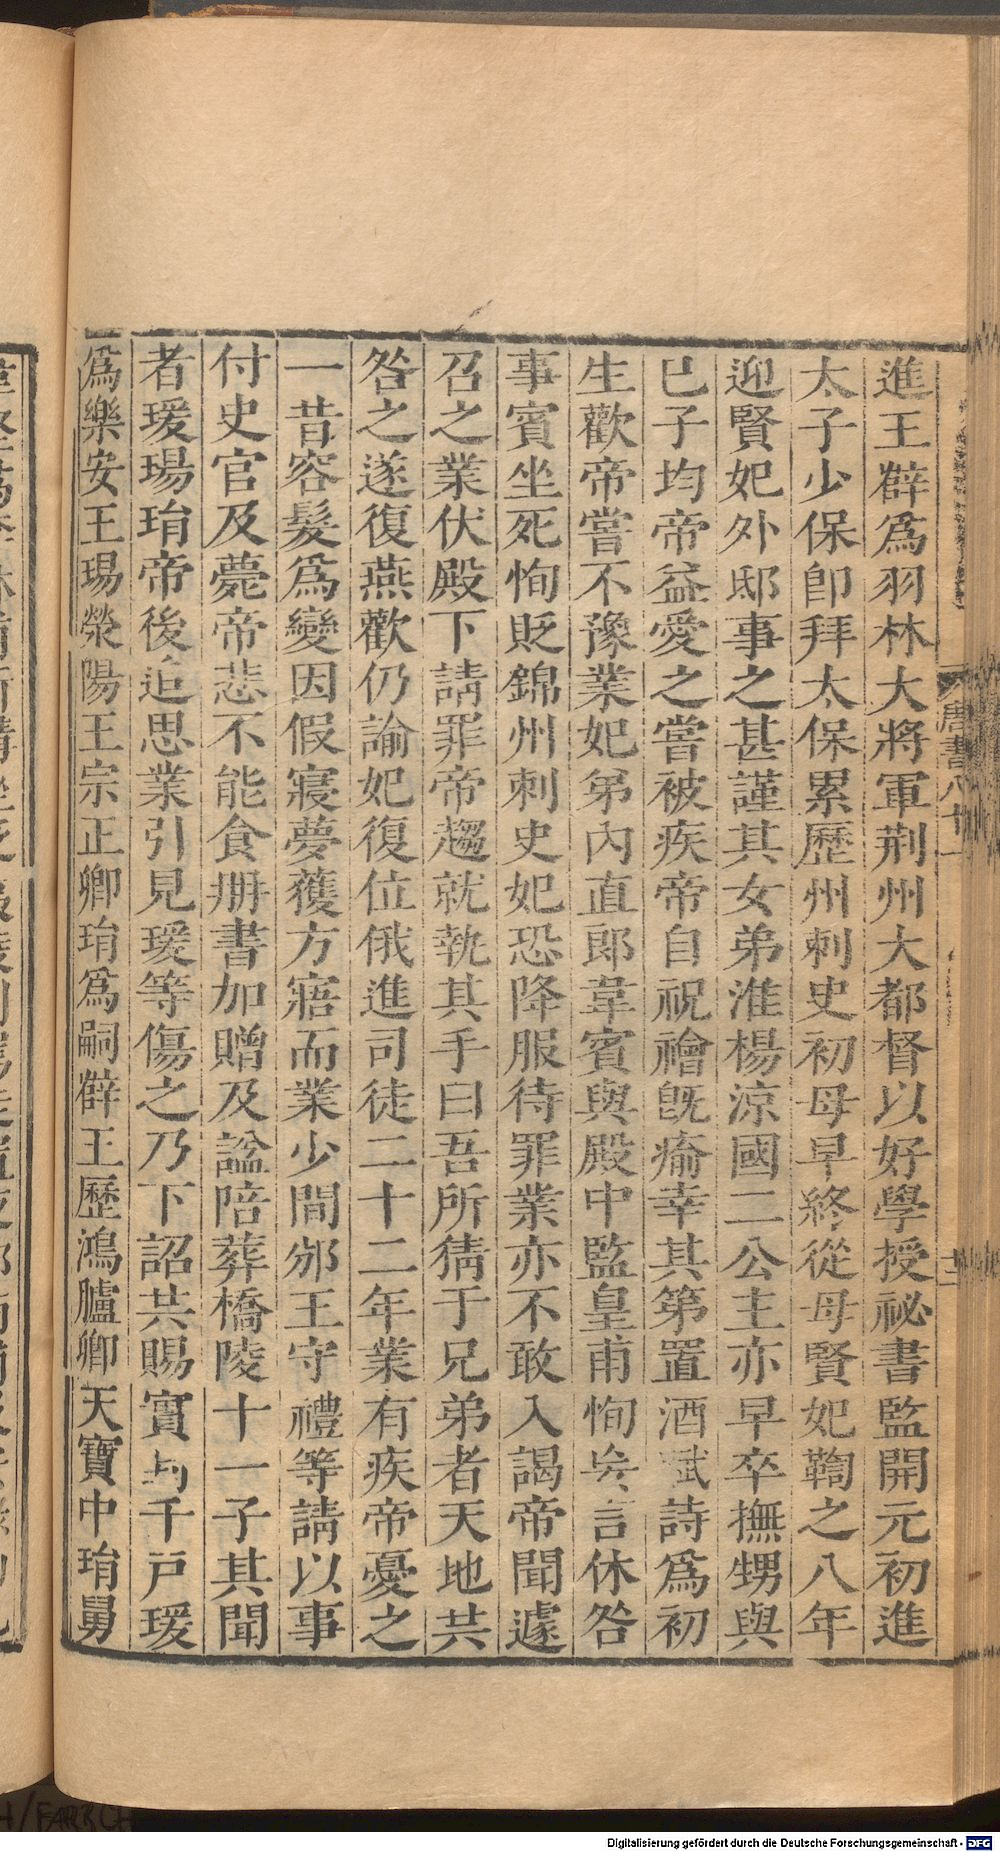 進王辥爲羽林大將軍荆州大都督以好學授祕書監開元初進
太子少保卽拜太保累歷州刺史初母早終從母賢妃鞫之八年
迎賢妃外邸事之甚謹其女弟淮楊涼國二公主亦早卒撫甥與
已子均帝益愛之嘗被疾帝自祝禬旣瘉幸其第置酒賦詩爲初
生歡帝嘗不豫業妃弟內直郎韋賓與殿中監皇甫恂妄言休咎
事賓坐死恂貶錦州刺史妃恐降服待罪業亦不敢入謁帝聞遽
召之業伏殿下請罪帝趨就執其手曰吾所猜于兄弟者天地共
咎之遂復燕歡仍諭妃復位俄進司徒二十二年業有疾帝憂之
一昔容髮爲變因假寢夢獲方寤而業少間邠王守禮等請以事
付史官及薨帝悲不能食册書加贈及諡陪葬橋陵十一子其聞
者瑗瑒琄帝後追思業引見瑗等傷之乃下詔共賜實封千戸瑗
爲樂安王瑒滎陽王宗正卿琄爲嗣辥王歷鴻臚卿天寶中琄舅
唐書八十一
Digitalisierung gefördert durch die Deutsche Forschungsgemeinschaft - DFG